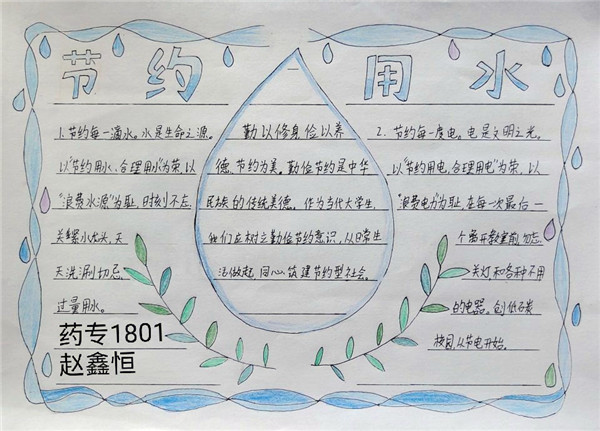 节约用水
1.节约每一滴水。水是生命之源。
以"节约用水、合理用水"为荣,以
"浪费水源"为耻,时刻不忘
关紧水龙头,天
天洗涮切忌
过量用水。
药专1801
赵鑫恒
勤以修身俭以养
德,节约为美。勤俭节约是中华
民族的传统美德。作为当代大学生,
我们应树立勤俭节约意识,从日常生
活做起,同心筑建节约型社会。
2.节约每一度电。电是文明之光。
以"节约用电,合理用电"为荣,以
"浪费电力"为耻,在每次最后一
个离开教室前,勿忘
关灯和各种不用
的电器。创低碳
校园从节电开始。